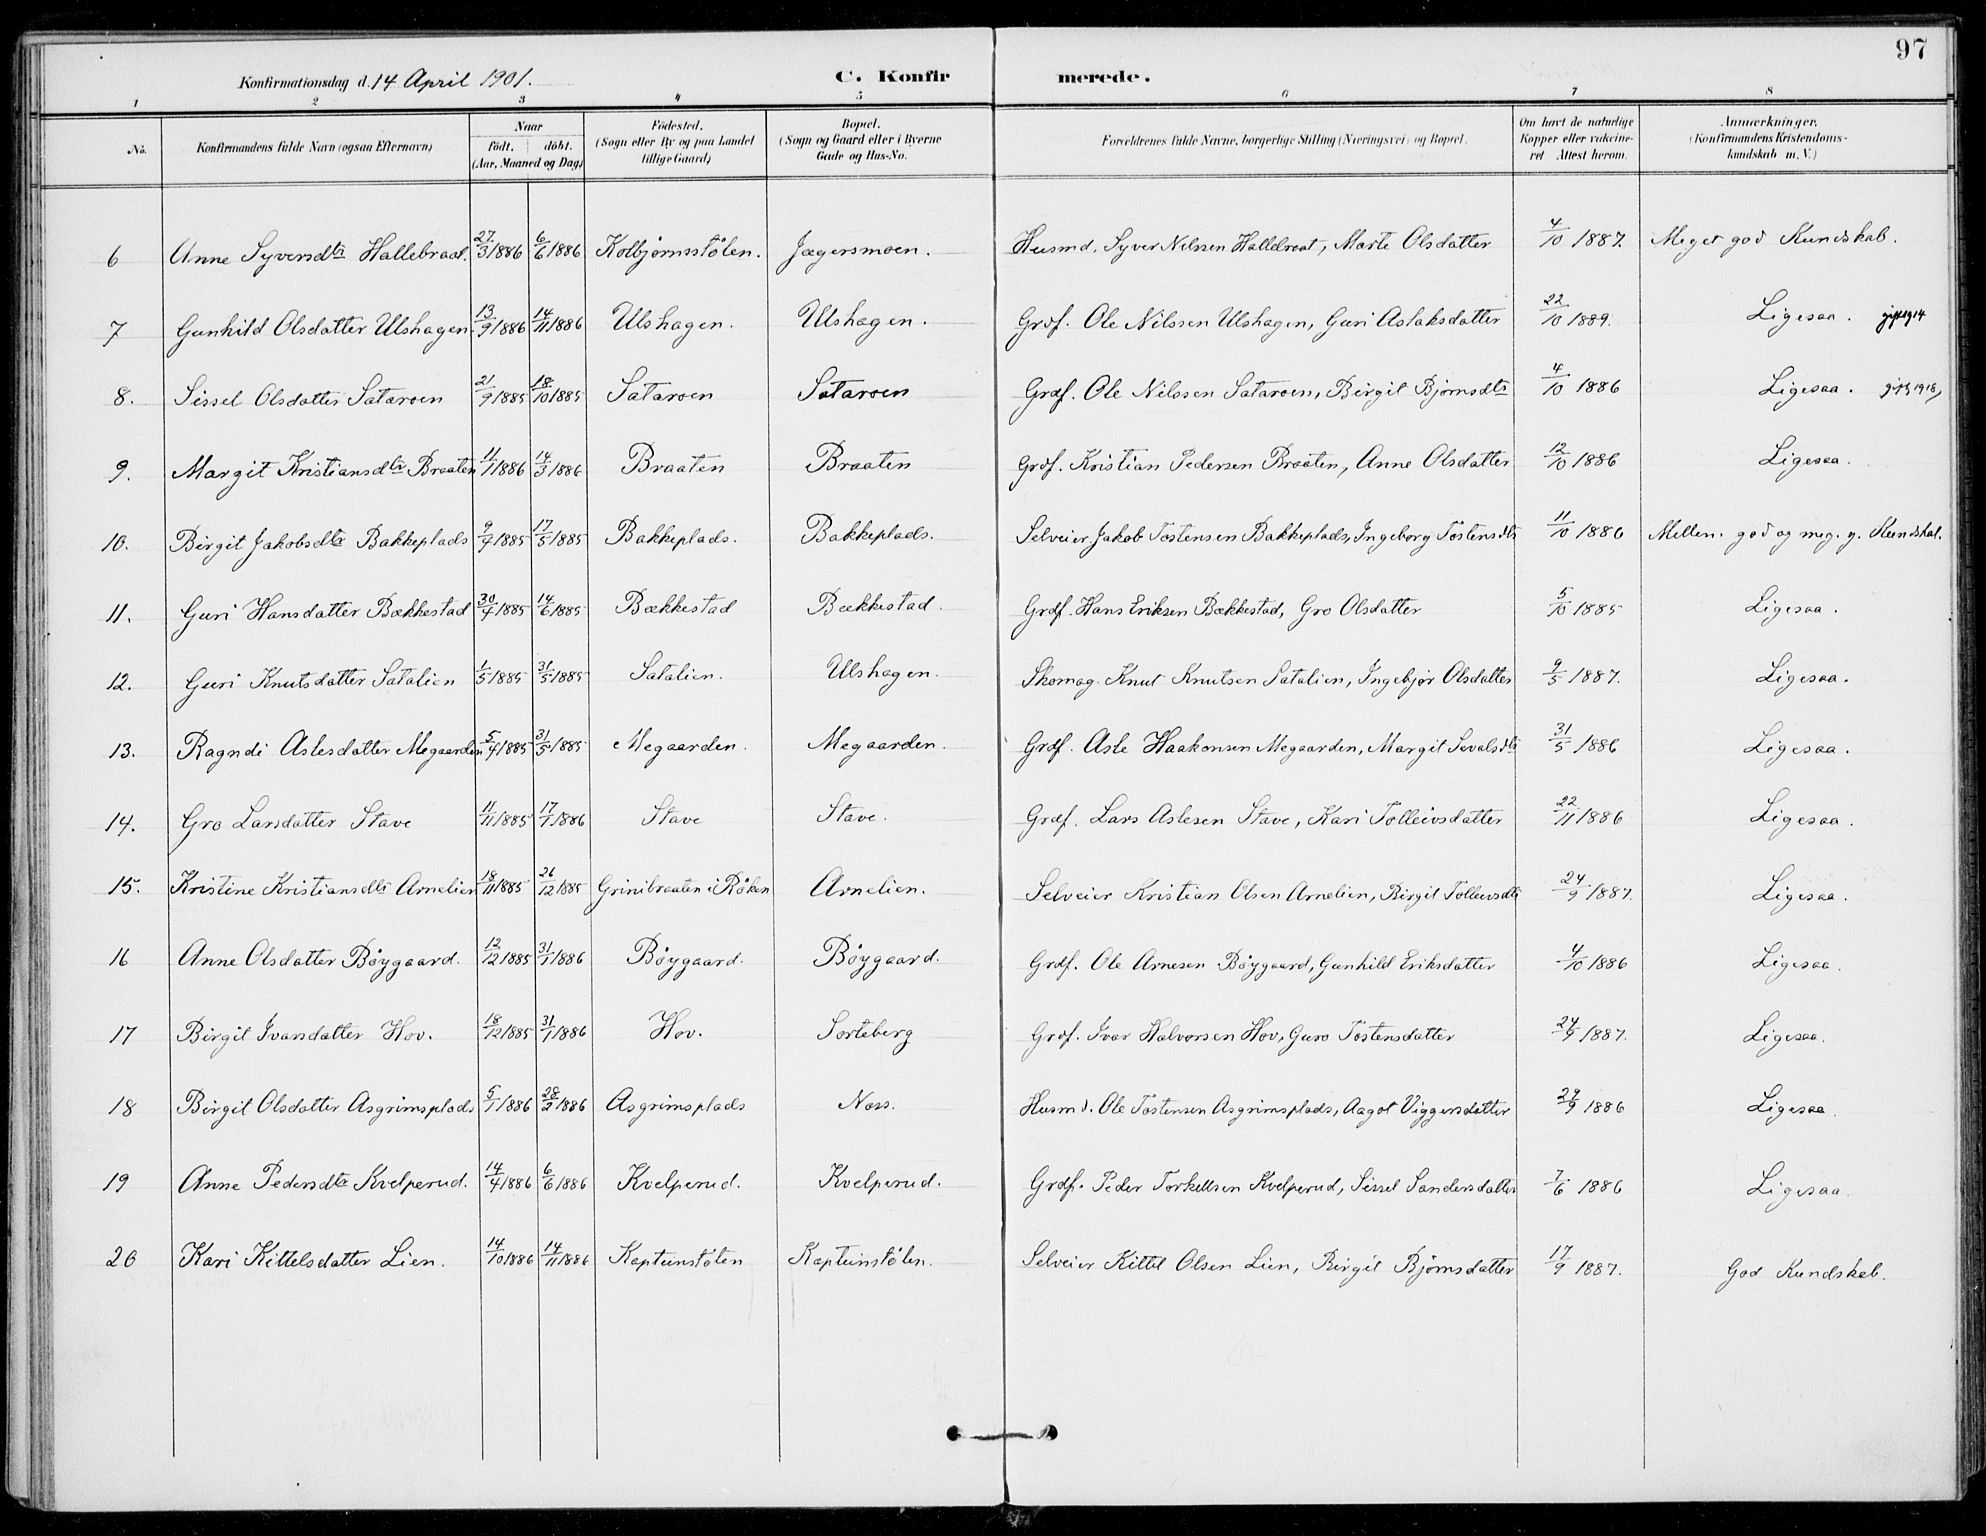 97
Konfirmationsdag d. 14 April 1901. C. Konfirmerede.
1 2 3 4 5 6 7 8
No. Konfirmandens fulde Navn (ogsaa Efternavn) Naar födt. döbt. (Aar, Maaned og Dag) Fødested. (Sogn eller By og paa Landet tillige Gaard) Bopæl. (Sogn og Gaard eller i Byerne Gade og Hus-No. Forældrenes fulde Navne, borgerlige Stilling (Næringsvei) og Bopæl. Om havt de naturlige Kopper eller vakcineret Attest herom. Anmærkninger. (Konfirmandens Kristendomskundskab m. V.)
6 Anne Syversdtr Hallebraat. 27/3 1886 6/6 1886 Kolbjørnsstölen. Jægersmoen. Husmd. Syver Nilssen Hallebraat, Marte Olsdatter 4/10 1887. Meget god Kundskab.
7 Gunhild Olsdatter Ulshagen 13/9 1886 14/11 1886 Ulshagen. Ulshagen. Grdf. Ole Nilssen Ulshagen, Guri Aslaksdatter 22/10 1889. Ligesaa. gift 1914
8. Sissel Olsdatter Sataroen 21/9 1885 18/10 1885 Sataroen Sataroen Grdf. Ole Nilssen Sataroen, Birgit Bjørnsdtr 4/10 1886 Ligesaa. gift 1918
9. Margit Kristiansdtr Braaten 11/1 1886 14/3 1886 Braaten Braaten Grdf. Kristian Pedersen Braaten, Anne Olsdatter 12/10 1886 Ligesaa.
10. Birgit Jakobsdtr Bakkeplads 9/4 1885 17/5 1885 Bakkeplads. Bakkeplads. Selveier Jakob Tostensen Bakkeplads, Ingeborg Tostensdtr 11/10 1886 Mellem god og meg. g. Kundskab.
11. Guri Hansdatter Bækkestad 30/4 1885 14/6 1885 Bækkestad Bækkestad. Grdf. Hans Eriksen Bækkestad, Gro Olsdatter 5/10 1885 Ligesaa.
12. Guri Knutsdatter Satalien 1/5 1885 31/5 1885 Satalien. Ulshagen. Skomag. Knut Knutsen Satalien, Ingebjør Olsdatter 9/5 1887. Ligesaa.
13. Ragndi Aslesdatter Megaarden 5/4 1885 31/5 1885 Megaarden. Megaarden. Grdf. Asle Haakonsen Megaarden, Margit Sevalsdtr 31/5 1886 Ligesaa.
14. Gro Larsdatter Stave 11/11 1885 17/1 1886 Stave Stave. Grdf. Lars Aslesen Stave, Kari Tolleivsdatter 22/11 1886 Ligesaa.
15. Kristine Kristiansdtr Arnelien 18/11 1885 26/12 1885 Grinibraaten i Røken Arnelien. Selveier Kristian Olsen Arnelien, Birgit Tolleivsdtr 24/9 1887. Ligesaa.
16 Anne Olsdatter Böygaard. 12/12 1885 31/1 1886 Böygaard. Böygaard. Grdf. Ole Arnesen Böygaard, Gunhild Eriksdatter 4/10 1886 Ligesaa.
17 Birgit Ivarsdatter Hov. 18/12 1885 31/1 1886 Hov. Sorteberg Grdf. Ivar Halvorsen Hov, Guro Tostensdatter 24/9 1887. Ligesaa.
18 Birgit Olsdatter Asgrimsplads 5/1 1886 28/2 1886 Asgrimsplads Næss. Husmd. Ole Tostensen Asgrimsplads, Aagot Viggersdatter 29/9 1886 Ligesaa.
19 Anne Pedersdtr Kvelperud. 14/4 1886 6/6 1886 Kvelperud. Kvelperud. Grdf. Peder Torkelsen Kvelperud, Sissel Sandersdatter 7/6 1886 Ligesaa.
20 Kari Kittelsdatter Lien. 14/10 1886 14/11 1886 Kapteinstölen Kapteinstölen. Selveier Kittil Olsen Lien, Birgit Bjørnsdatter 17/9 1887. God Kundskab.